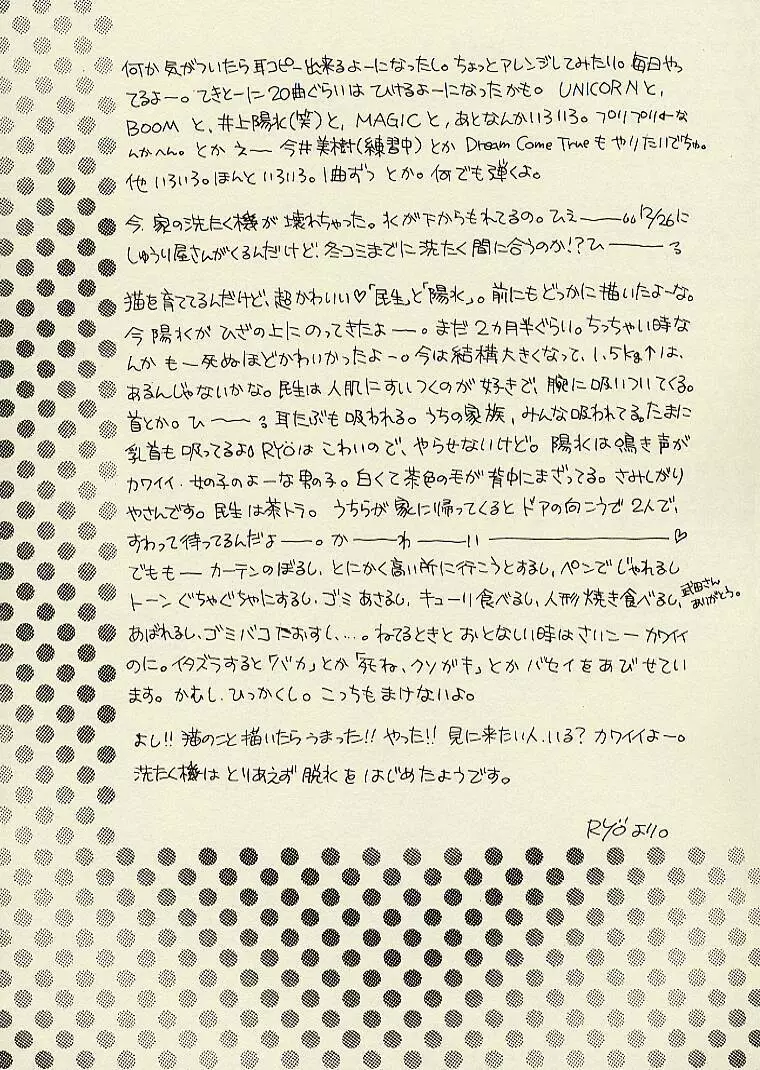 何か気がついたら耳コピー出来るよーになったし。ちょっとアレンジしてみたり。毎日やっ
てるよー。てきとーに20曲ぐらいはひけるよーになったかも。UNICORNと、
BOOMと、井上陽水(笑)と、MAGICと、あとなんかいろいろ。プリプリ
んかへん。とかえー今井美樹(練習中)とかDream Come Trueもやりたいでちゅ。
他いろいろ。ほんといろいろ。1曲ずつとか。何でも弾くよ。
今、家の洗たく機が壊れちゃった。水が下からもれてるの。ひえー 12/26に
しゅうり屋さんがくるんだけど、冬コミまでに洗たく間に合うのか!?ひーーーる
猫を育ててるんだけど、超かわいい♡「民生」と「陽水」。前にもどっかに描いたよーな。
今陽水がひざの上にのってきたよー。まだ2カ月半ぐらい。ちっちゃい時な
んかもー死ぬほどかわいかったよー。今は結構大きくなって、1.5kg↑は、
あるんじゃないかな。民生は人肌にすいつくのが好きで、腕に吸いついてくる。
首とか。ひーーる耳たぶも吸われる。うちの家族、みんな吸われてる。たまに
乳首も吸ってるよ。RYÖはこわいので、やらせないけど。陽水は鳴き声が
カワイイ、女の子のよーな男の子。白くて茶色の毛が背中にまざってる。さみしがり
やさんです。民生は茶トラ。うちらが家に帰ってくるとドアの向こうで2人で、
すわって待ってるんだよー。かーーわーーいーーーー♡
でももーカーテンのぼるし、とにかく高い所に行こうとするし、ペンでじゃれるし
トーンぐちゃぐちゃにするし、ゴミあさるし、キューリ食べるし、人形焼き食べるし、武田さんありがとう。
あばれるし、ゴミバコたおすし、…。ねてるときとおとなしい時はさいこーカワイイ
のに。イタズラすると「バカ」とか「死ね、クソガキ」とかバセイをあびせてい
ます。かむし、ひっかくし。こっちもまけないよ。
よし!!猫のこと描いたらうまった!!やった!!見に来たい人、いる?カワイイよー。
洗たく機はとりあえず脱水をはじめたようです。
RYÖより。